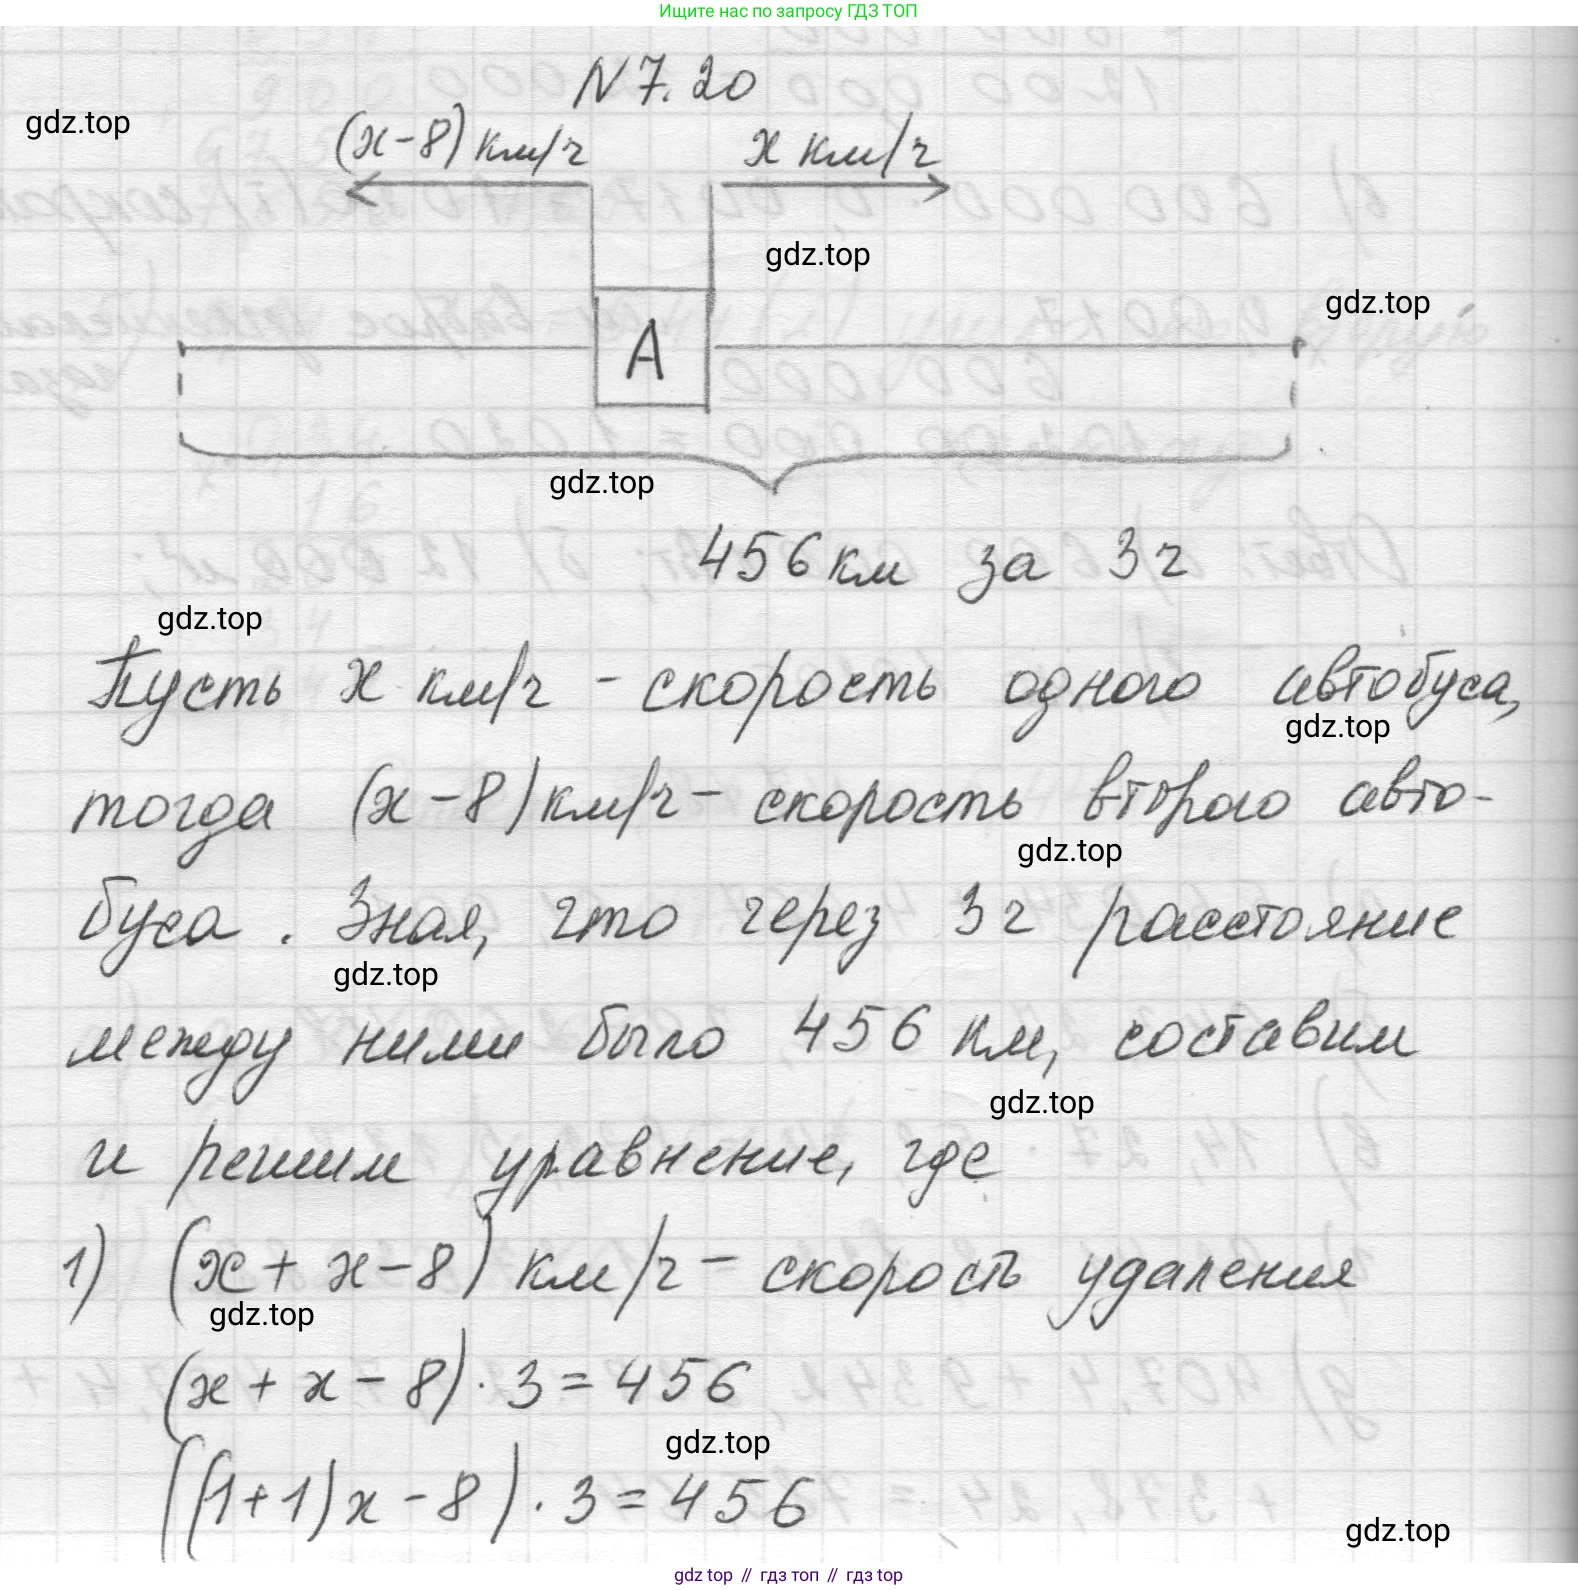 Ищите нас по запросу ГДЗ ТОП
N 7.20
gdz.top
(x-8) км/ч
x км/ч
gdz.top
gdz.top
A
gdz.top
456 км за 3 ч
gdz.top
Пусть x км/ч - скорость одного автобуса,
gdz.top
тогда (x-8) км/ч - скорость второго авто-
gdz.top
буса. Зная, что через 3 ч расстояние
gdz.top
между ними было 456 км, составим
gdz.top
и решим уравнение, где
1) (x+x-8) км/ч - скорость удаления
gdz.top
(x+x-8)·3=456
gdz.top
((1+1)x-8)·3=456
gdz.top
gdz top // гдз топ // гдз top